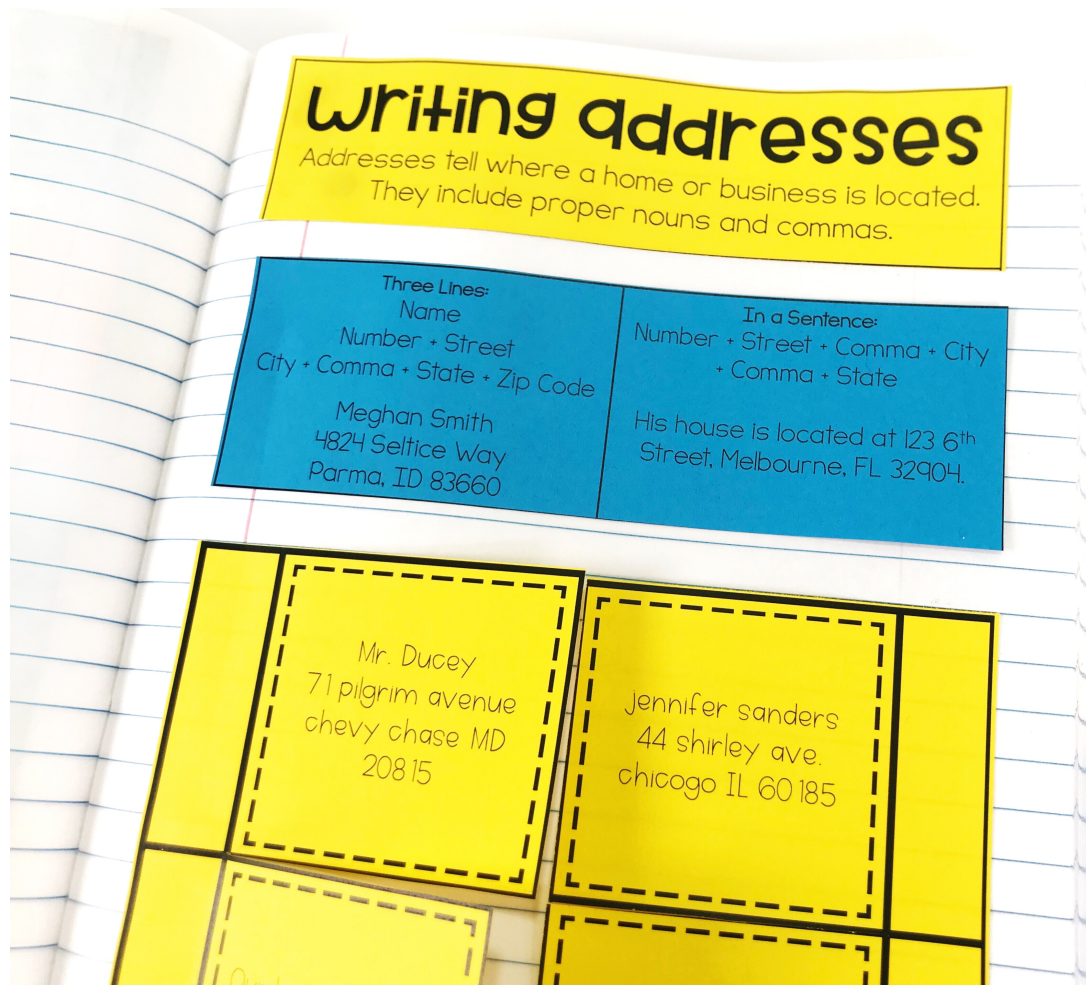 Writing addresses
Addresses tell where a home or business is located.
They include proper nouns and commas.
Three Lines:
Name
Number + Street
City + Comma + State + Zip Code
Meghan Smith
4824 Seltice Way
Parma, ID 83660
In a Sentence:
Number + Street + Comma + City
+ Comma + State
His house is located at 123 6th
Street, Melbourne, FL 32904.
Mr. Ducey
71 pilgrim avenue
chevy chase MD
20815
jennifer sanders
44 shirley ave.
chicogo IL 60185